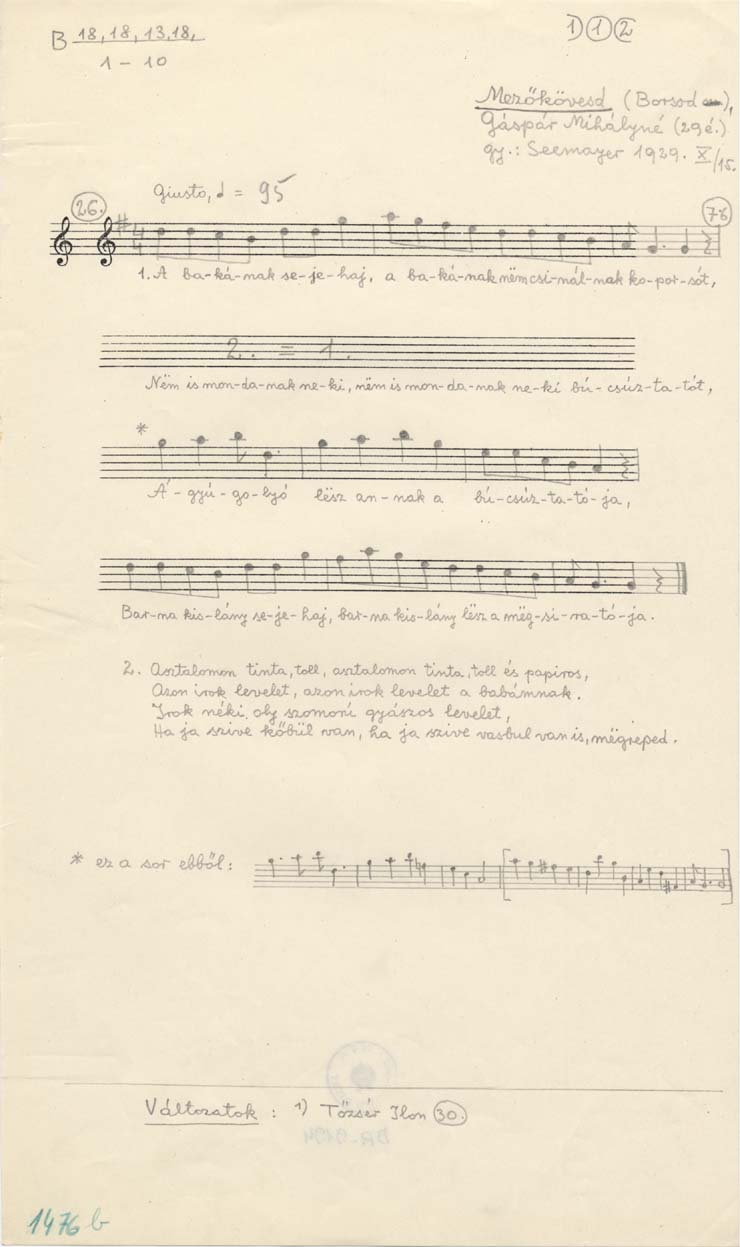 B 18, 18, 13, 18,
1 - 10
1) 1 2
Mezőkövesd (Borsod),
Gáspár Mihályné (29 é.)
gy.: Seemayer 1929. X/15.
Giusto, = 95
26.
76
4
4
1. A ba-ká-nak se-je-haj, a ba-ká-nak nëm csi-nál-nak ko-por-sót,
2. = 1.
Nëm is mon-da-nak ne-ki, nëm is mon-da-nak ne-ki bú-csúz-ta-tót,
*
Á-gyú-go-lyó lësz an-nak a bú-csúz-ta-tó-ja,
Bar-na kis-lány se-je-haj, bar-na kis-lány lësz a mëg-si-ra-tó-ja.
2. Asztalomon tinta, toll, asztalomon tinta, toll és papiros,
Azon irok levelet, azon irok levelet a babámnak.
Irok néki oly szomorú gyászos levelet,
Ha ja szive kőbül van, ha ja szive vasbul van is, mëgreped.
* ez a sor ebből:
Változatok: 1) Tőzsér Ilon 30.
1476 b